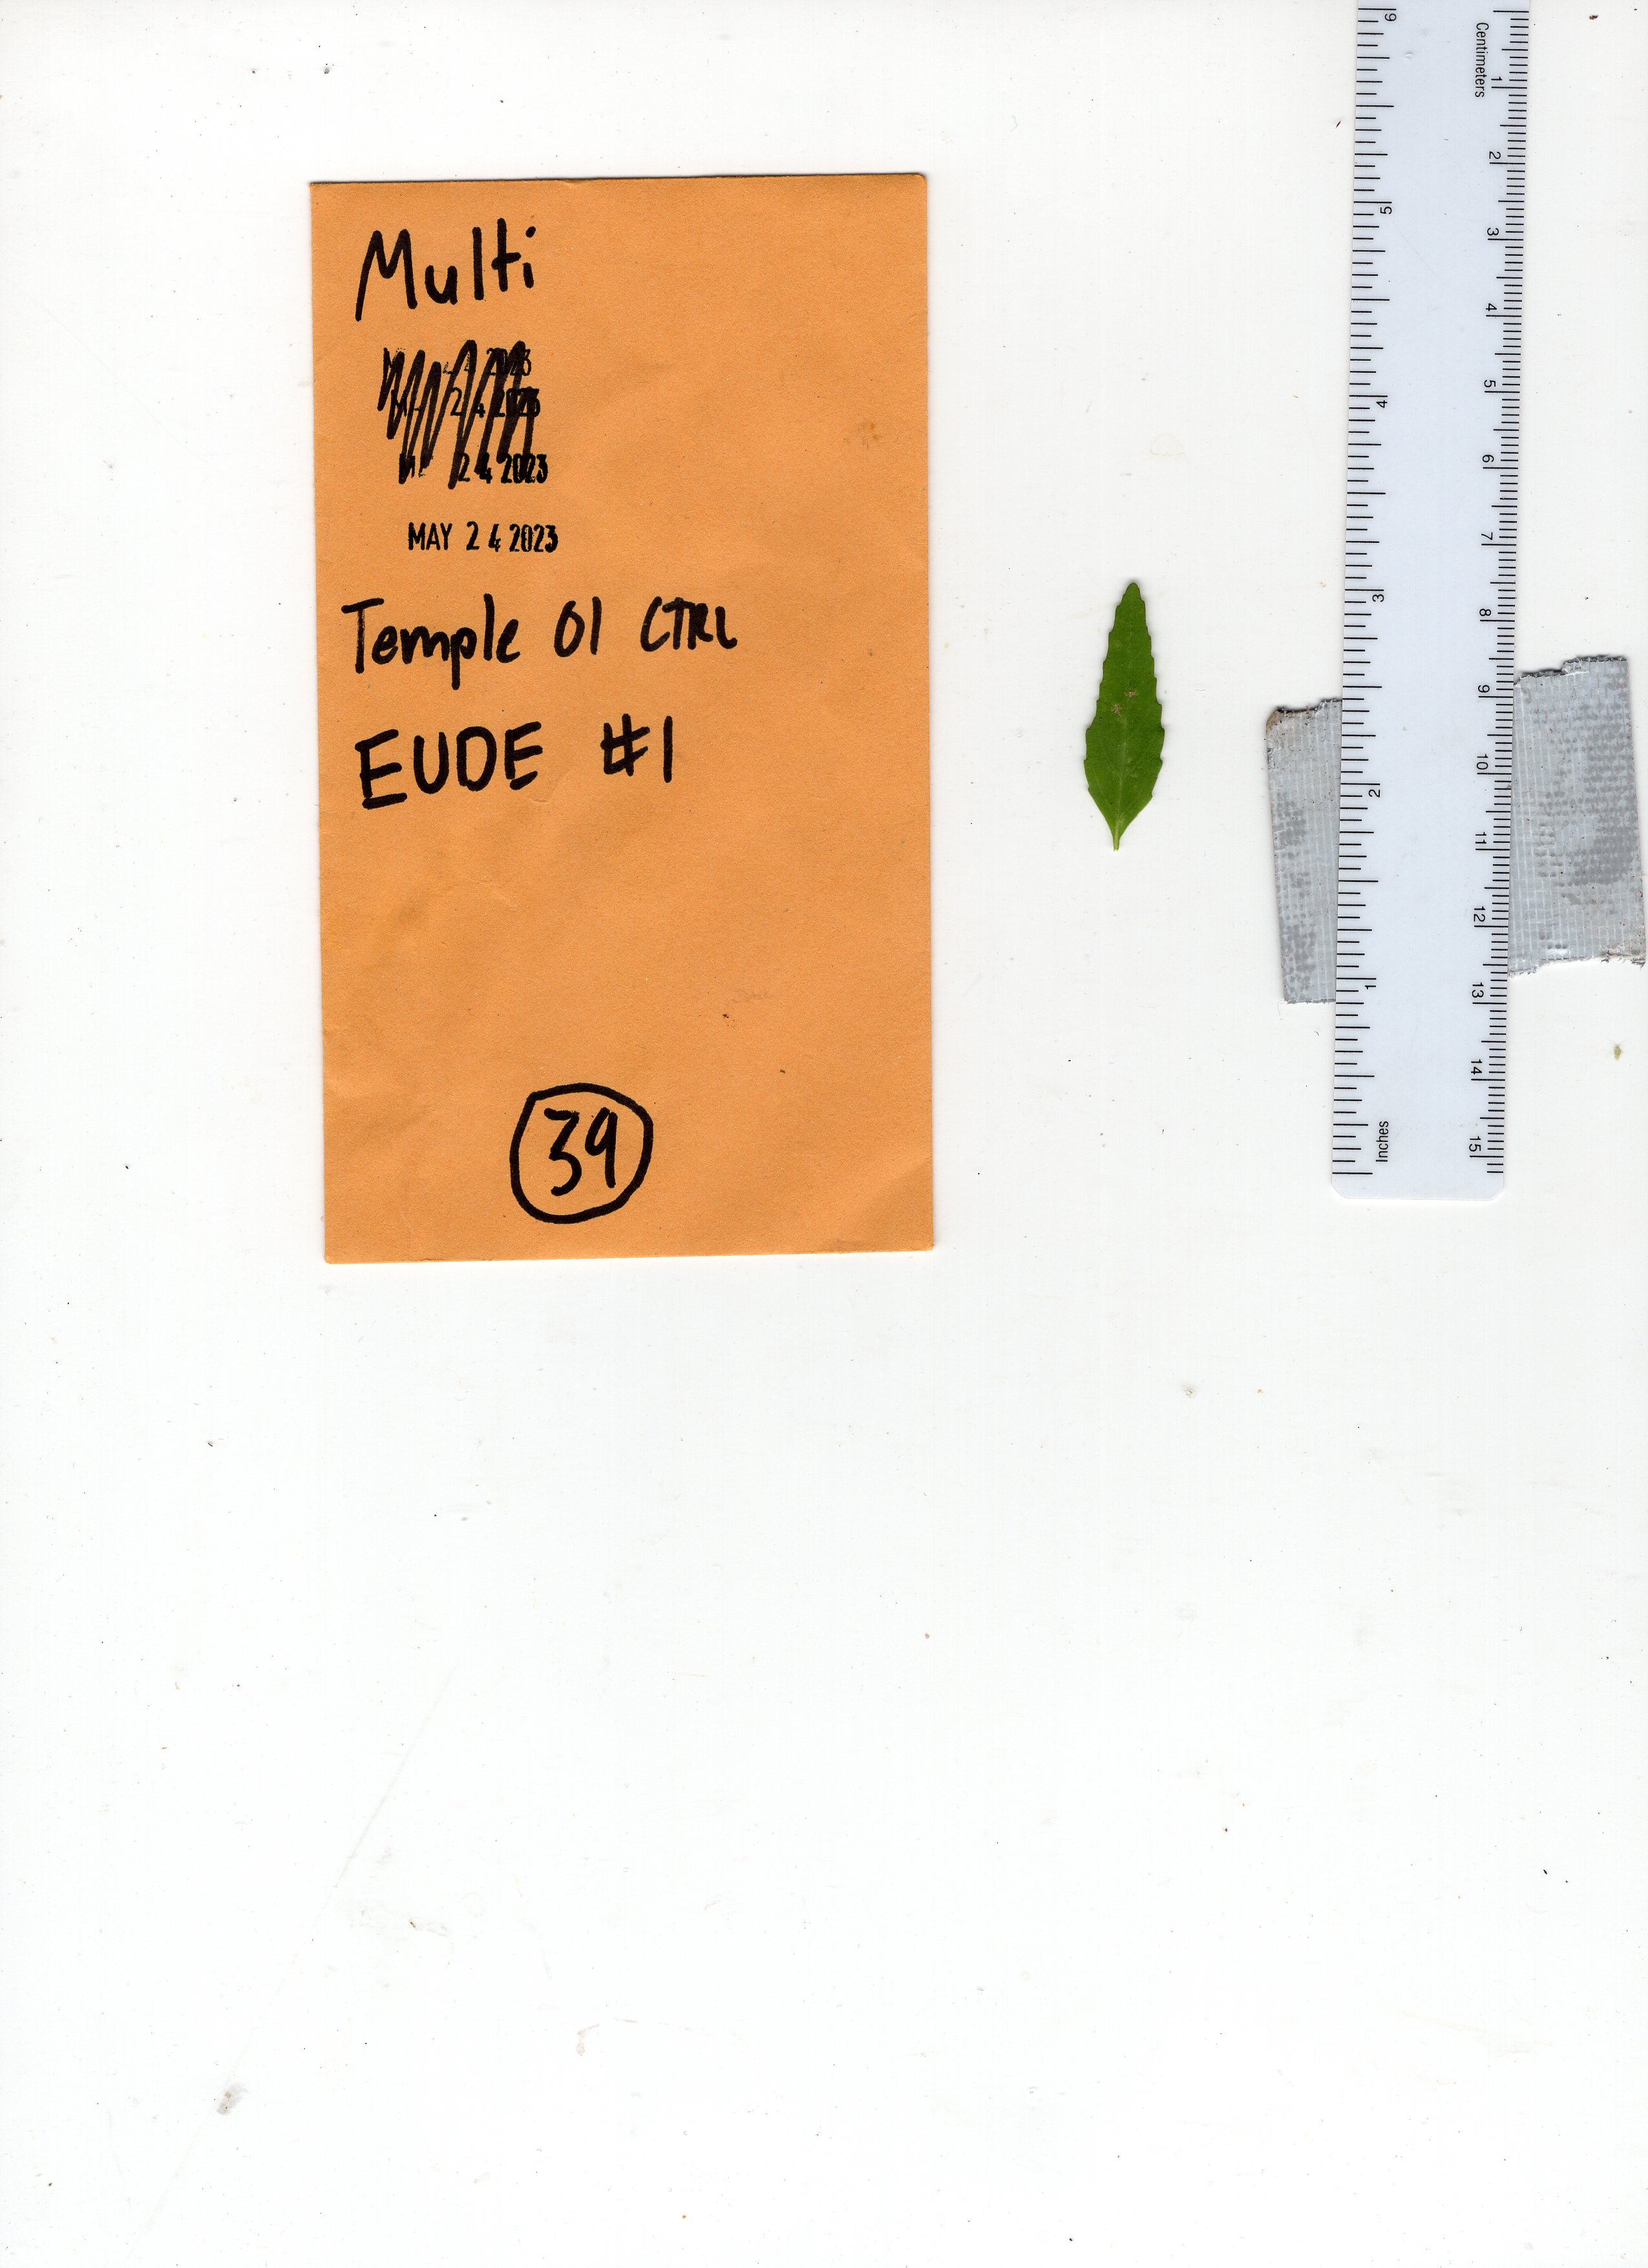 Multi
2023
2 4 2023
2 4 2023
MAY 2 4 2023
Temple 01 CTRL
EUDE #1
39
Centimeters
1
2
3
4
5
6
7
8
9
10
11
12
13
14
15
6
5
4
3
2
1
Inches